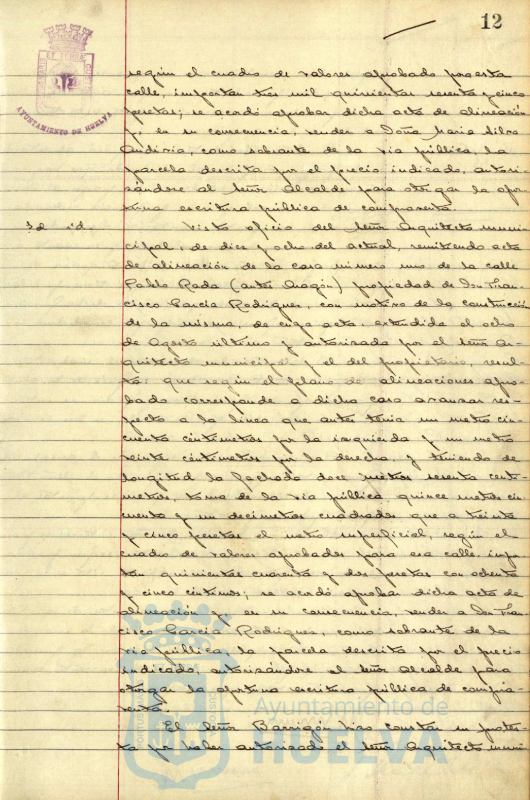 12
AYUNTAMIENTO DE HUELVA
según el cuadro de valores aprobado para esta
calle, importan tres mil quinientas sesenta y cinco
pesetas; se acordó aprobar dicha acta de alineación
y, en su consecuencia, vender a Doña Maria Silva
como sobrante de la via pública, la
parcela descrita por el precio indicado, autori-
zándose al Señor Alcalde para otorgar la opor-
tuna escritura pública de compraventa.
Id id. Visto oficio del Señor Arquitecto muni-
cipal, de diez y ocho del actual, remitiendo acta
de alineación de la casa número uno de la calle
Pablo Rada (antes Aragón) propiedad de Don Fran-
cisco Garcia Rodriguez, con motivo de la construcción
de la misma, de cuya acta, extendida el ocho
de Agosto último y autorizada por el Señor Ar-
quitecto municipal y el del propietario, resul-
ta: que según el plano de alineaciones apro-
bado corresponde a dicha casa avanzar res-
pecto a la linea que antes tenia un metro cin-
cuenta céntimetros por la izquierda y un metro
veinte céntimetros por la derecha, y teniendo de
longitud la fachada doce metros sesenta centi-
metros, toma de la via pública quince metros cin-
cuenta y un decimetros cuadrados que a treinta
y cinco pesetas el metro superficial, según el
cuadro de valores aprobados para esa calle, impor-
tan quinientas cuarenta y dos pesetas con ochenta
y cinco céntimos; se acordó aprobar dicha acta de
alineación y en su consecuencia, vender a Don Fran-
cisco Garcia Rodriguez, como sobrante de la
via pública, la parcela descrita por el precio
indicado, autorizándose al Señor Alcalde para
otorgar la oportuna escritura pública de compra-
venta.
El Señor Barrigón hizo constar su protes-
ta por haber autorizado el Señor Arquitecto muni-
Ayuntamiento de
HUELVA